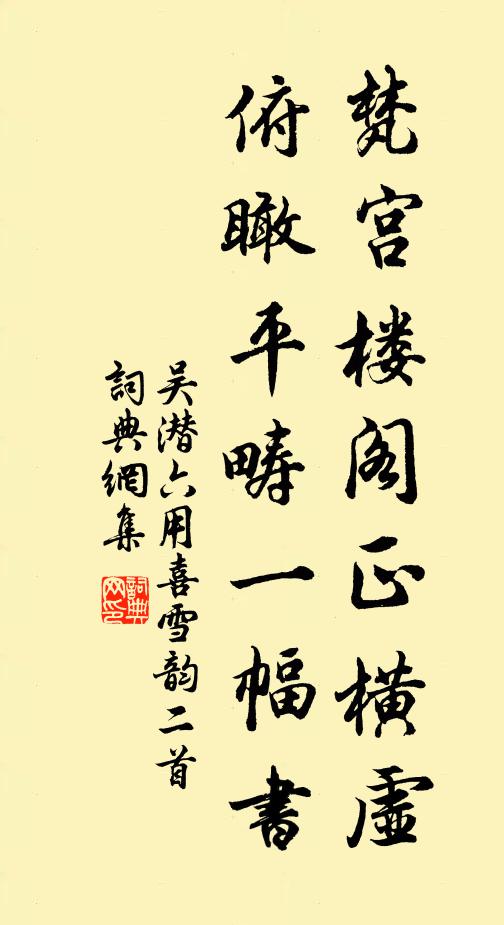 梵宫楼阁正横虚
俯瞰平畴一幅書
吴潜六用喜雪韵二首
詞典網集
詞典网印